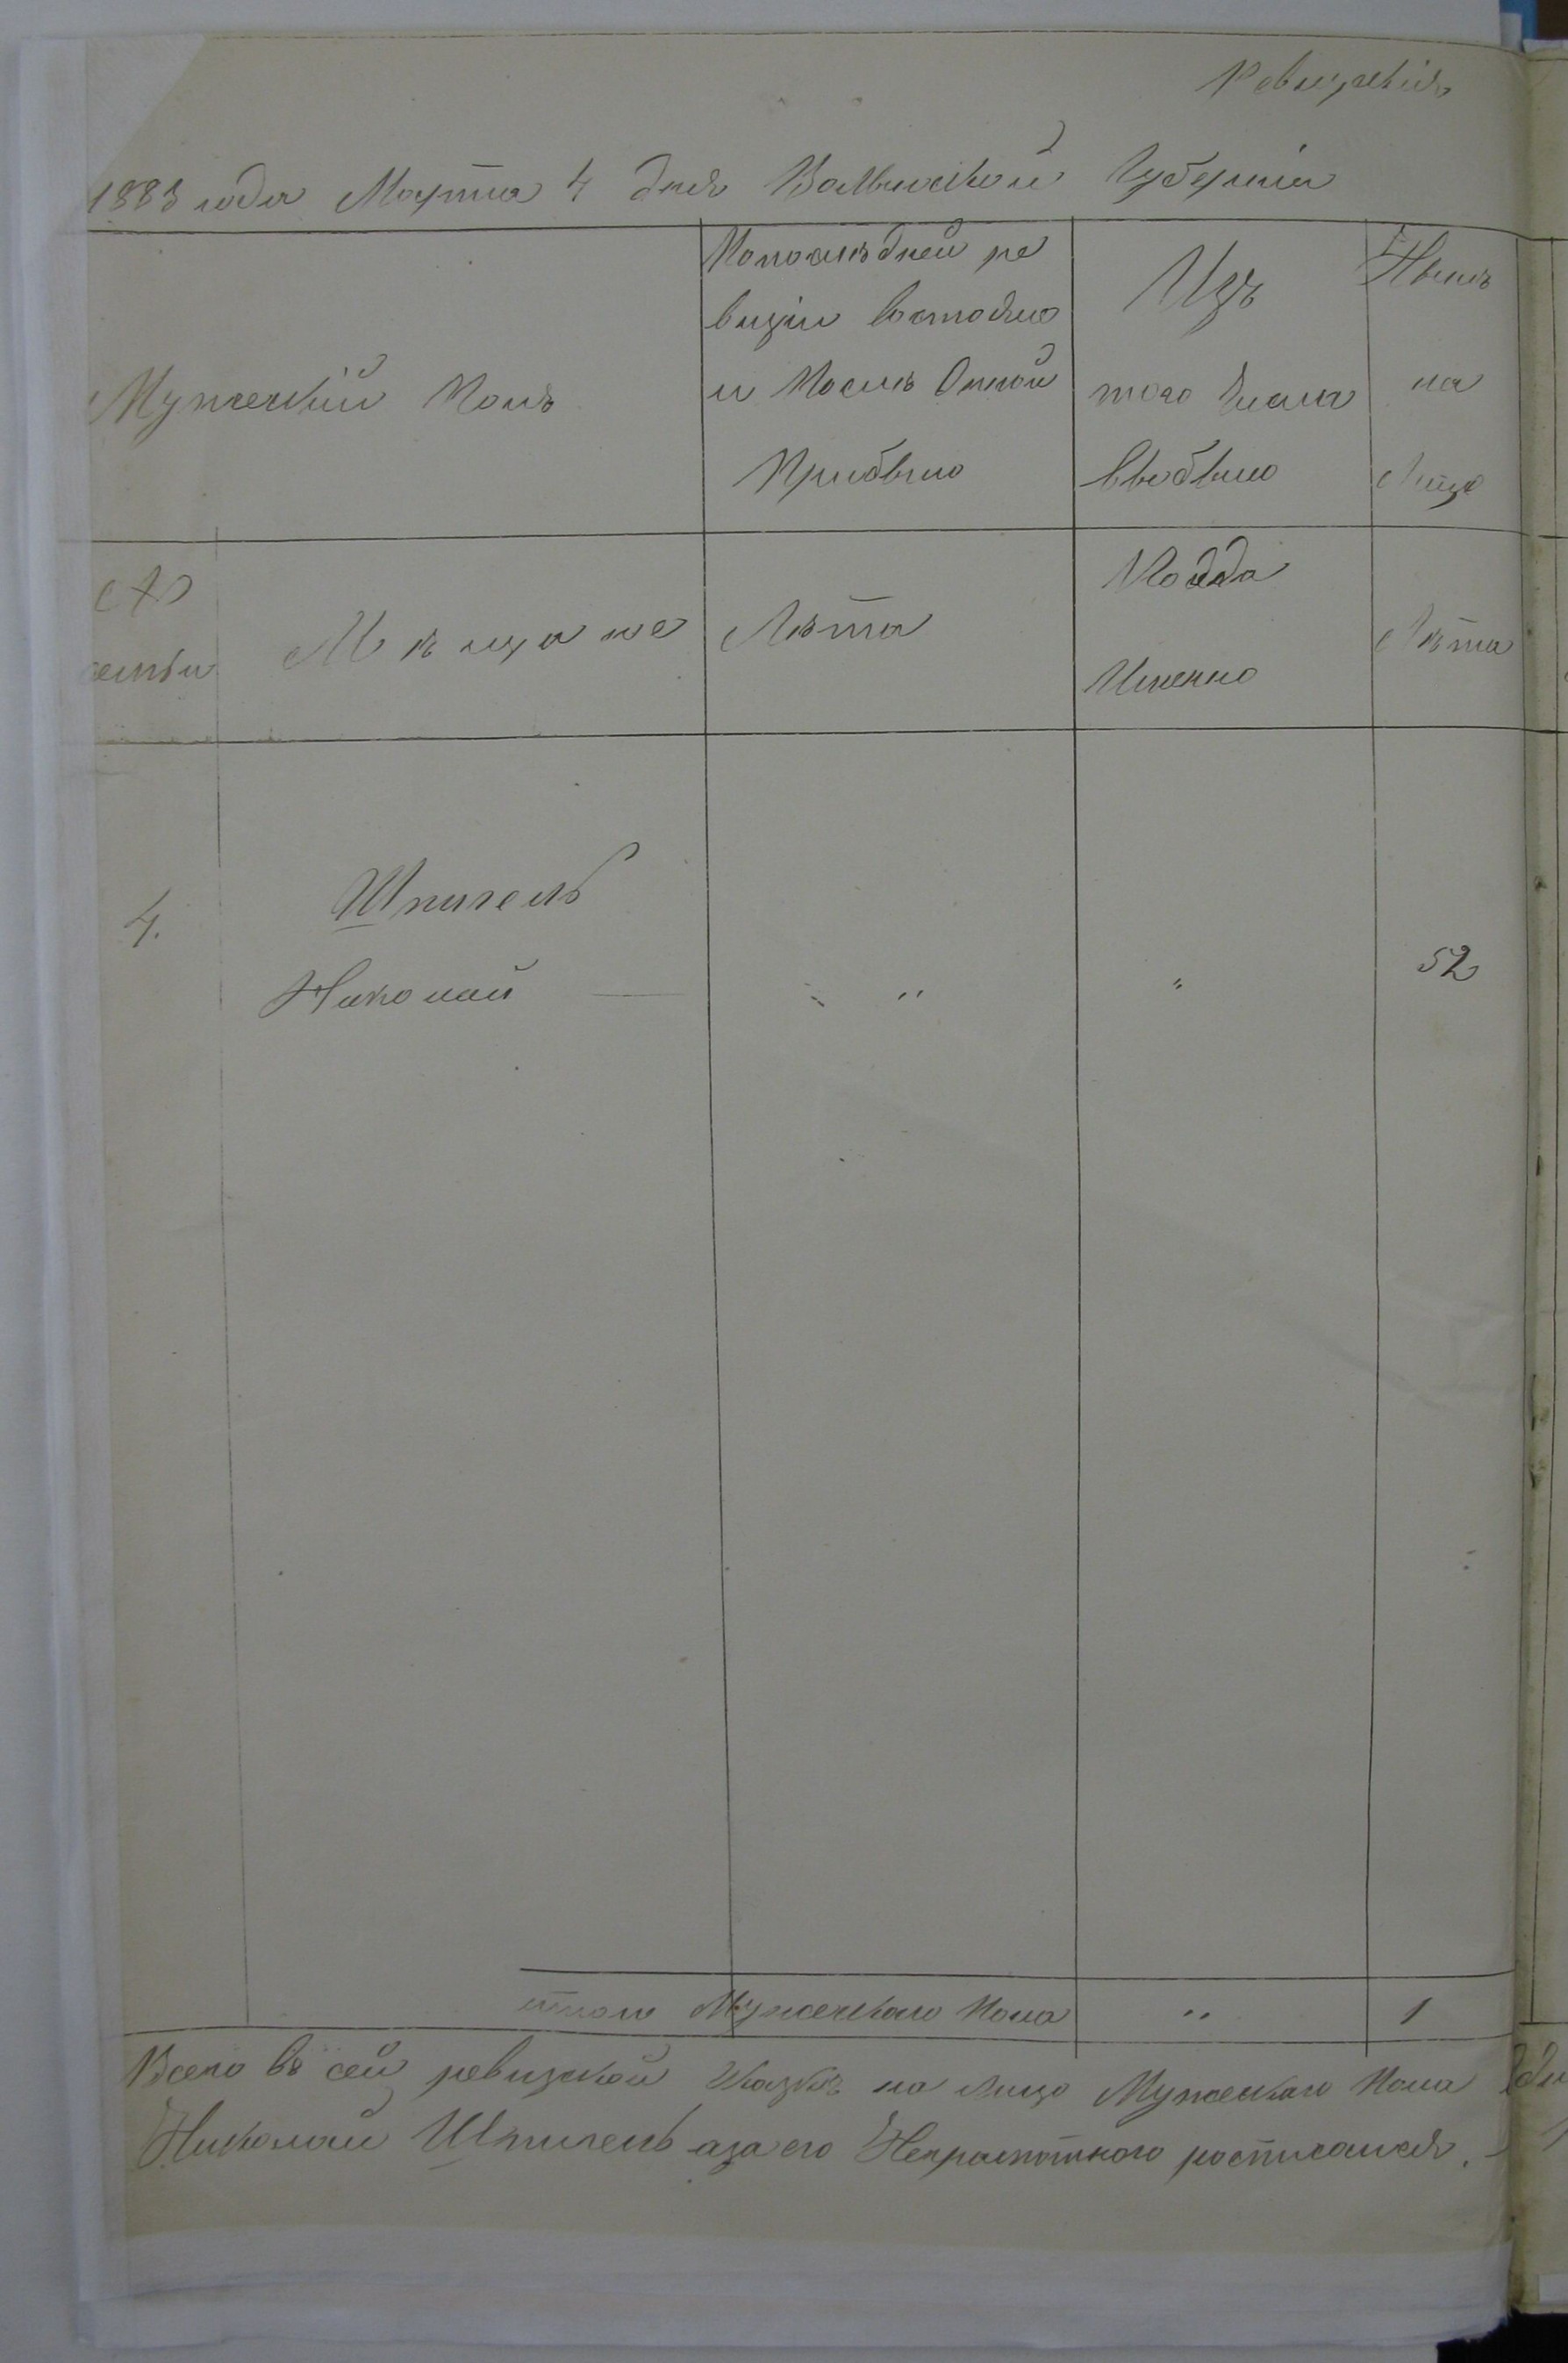 Ревизская
1883 года Марта 4 дня Волынской Губернии
Мужескій Полъ
По послѣдней ре
визіи состояло
и Послѣ Онной
Прибыло
Изъ
того числа
выбыло
Нынѣ
на
Лицо
№
семьи
Мѣщане
Лѣта
Когда
Именно
Лѣта
4.
Шпигель
Николай — " " 52
итого Мужескаго Пола " 1
Всего въ сей ревизской сказкѣ на лицо Мужескаго Пола
Николай Шпигель а за его Неграмотного росписался.